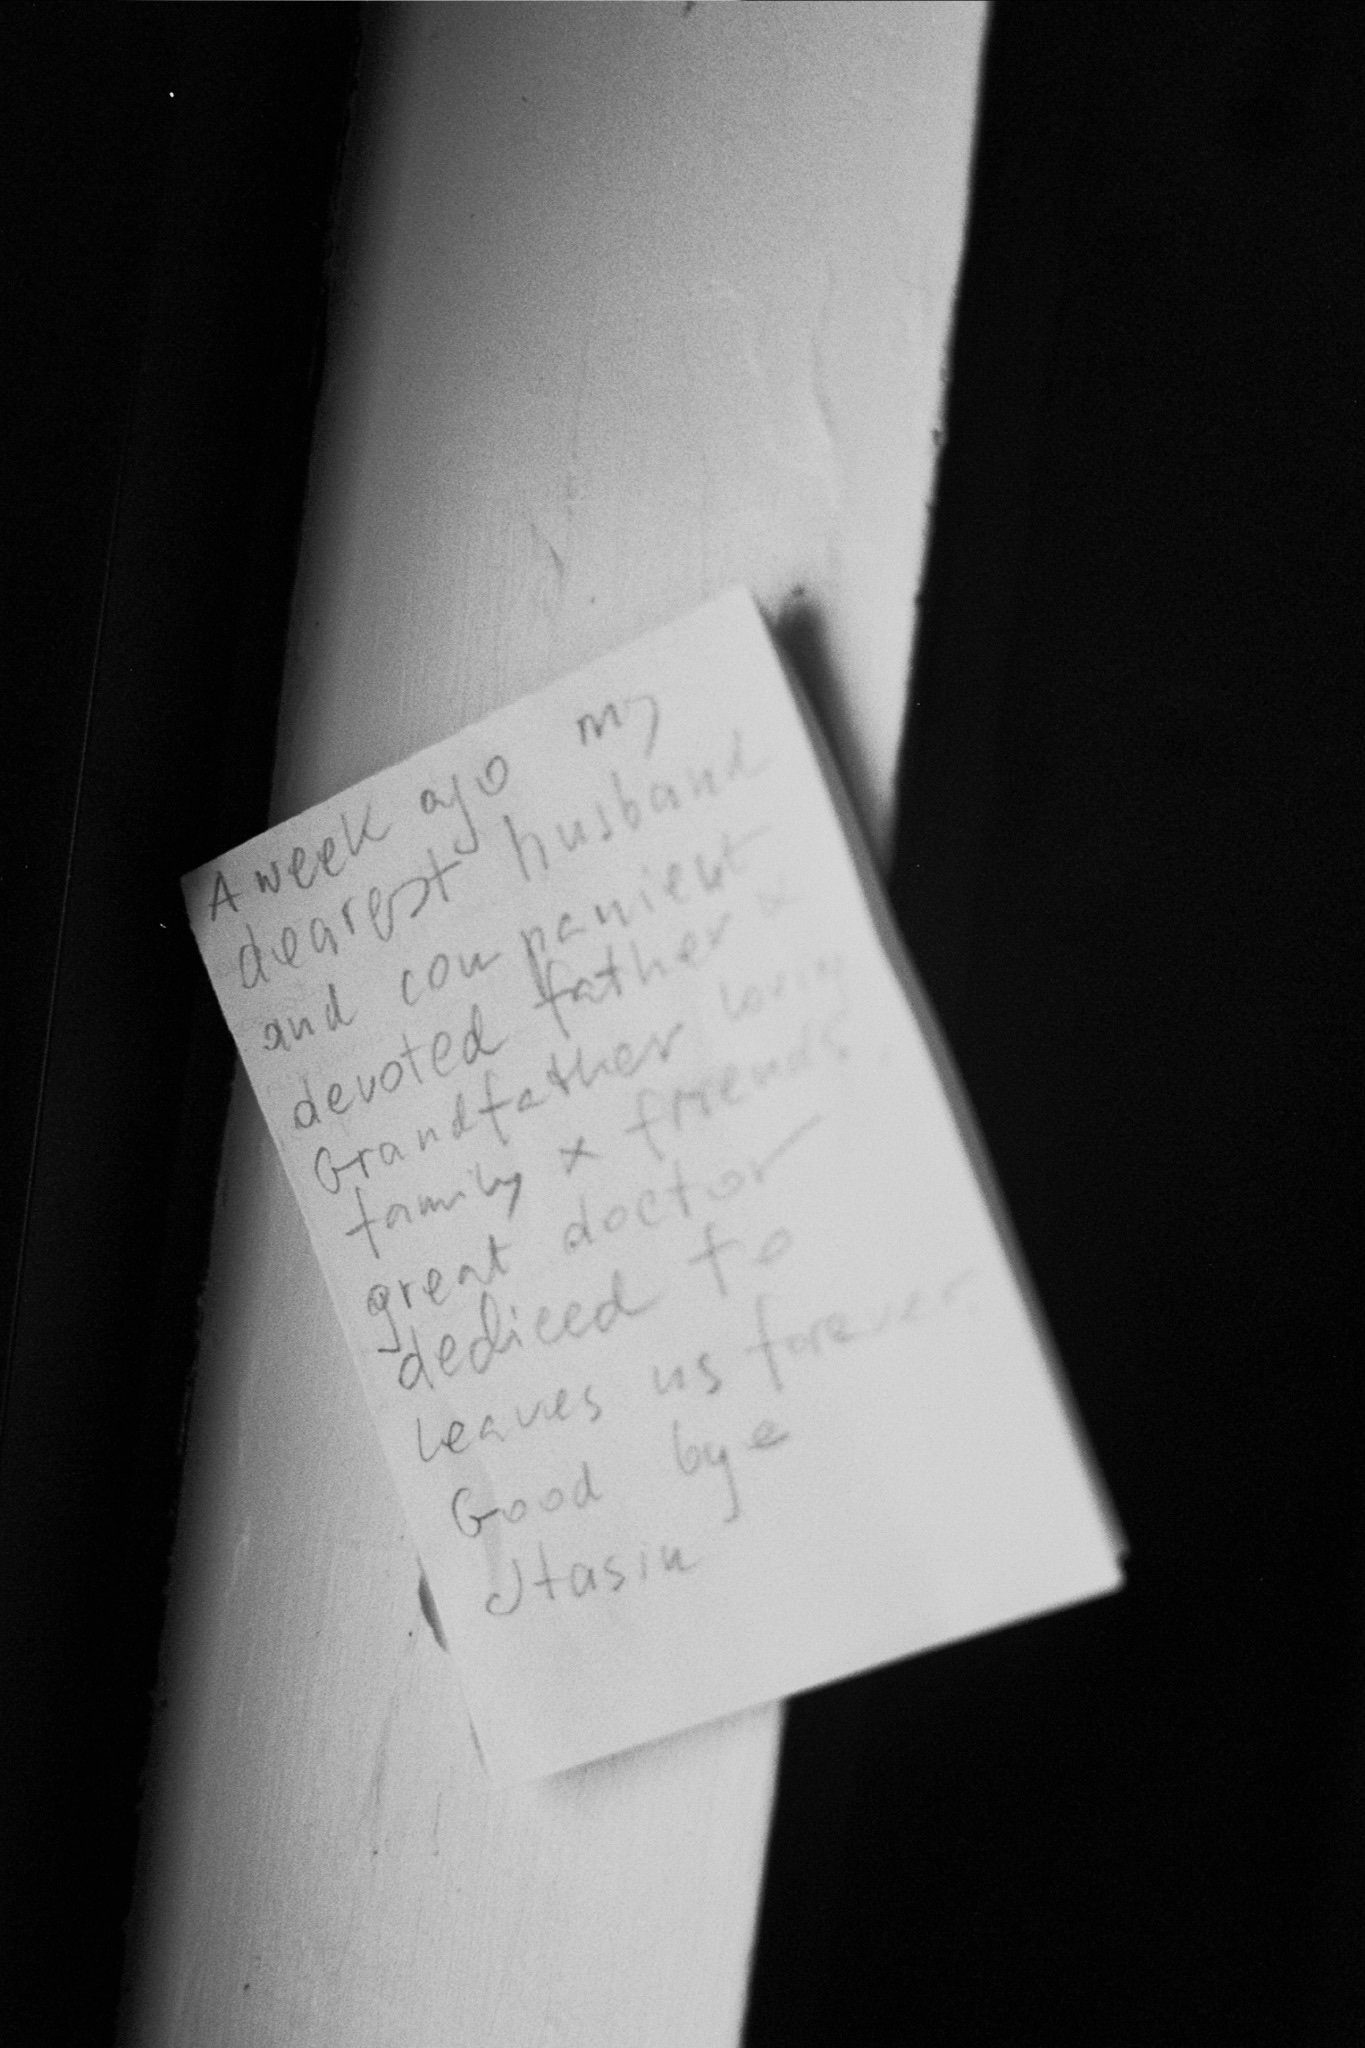 A week ago my
dearest husband
and companient
devoted father x
Grandfather, loving
family x friends,
great doctor
dediced to
leaves us forever
Good bye
Jtasin